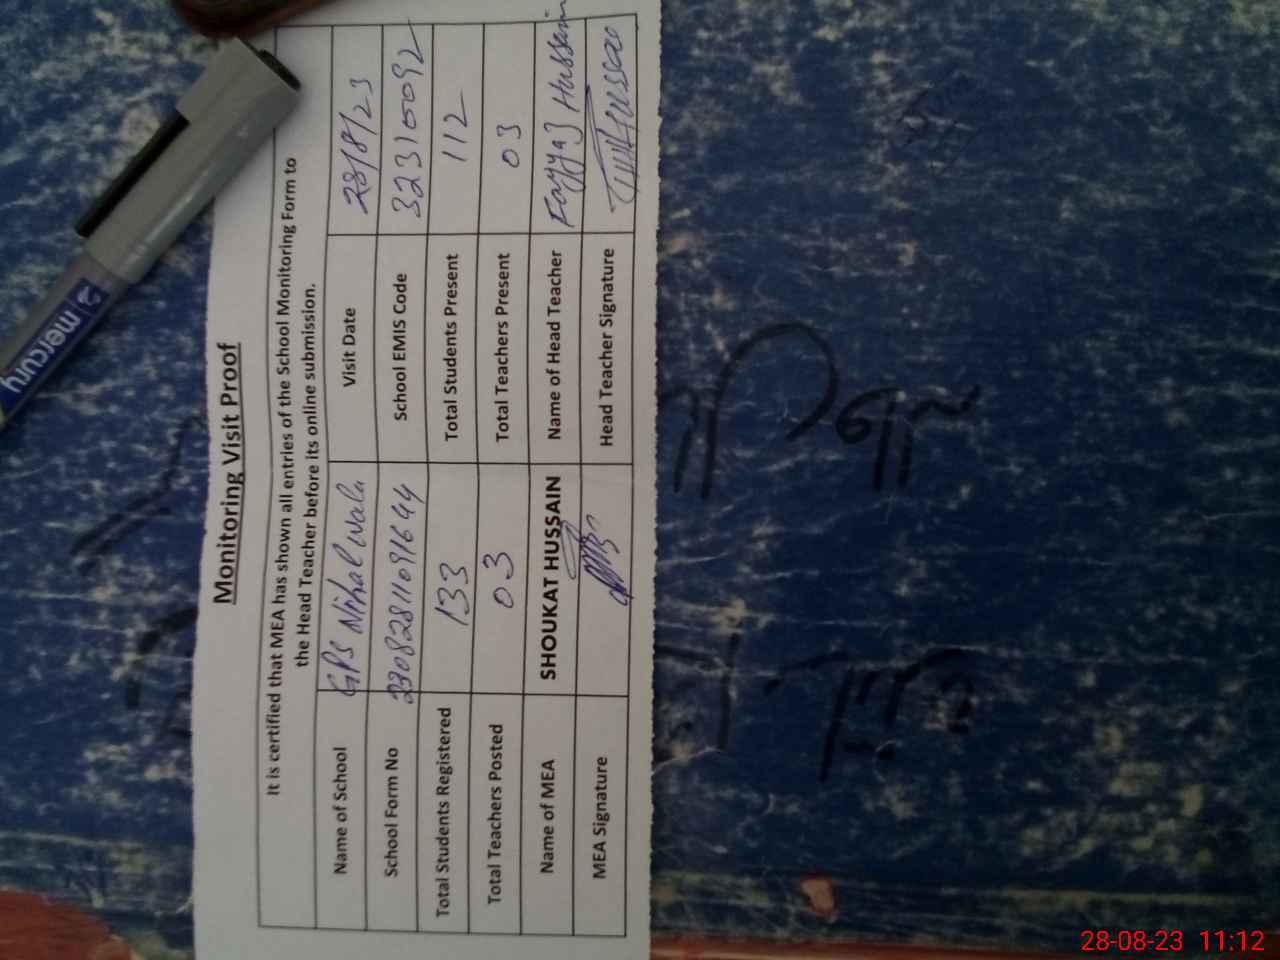 Monitoring Visit Proof
It is certified that MEA has shown all entries of the School Monitoring Form to
the Head Teacher before its online submission.
Name of School GPS Nihal wala Visit Date 28/8/23
School Form No 23082811091644 School EMIS Code 32310092
Total Students Registered 133 Total Students Present 112
Total Teachers Posted 03 Total Teachers Present 03
Name of MEA SHOUKAT HUSSAIN Name of Head Teacher Fayyaz Hussain
MEA Signature Head Teacher Signature
mercury
28-08-23 11:12